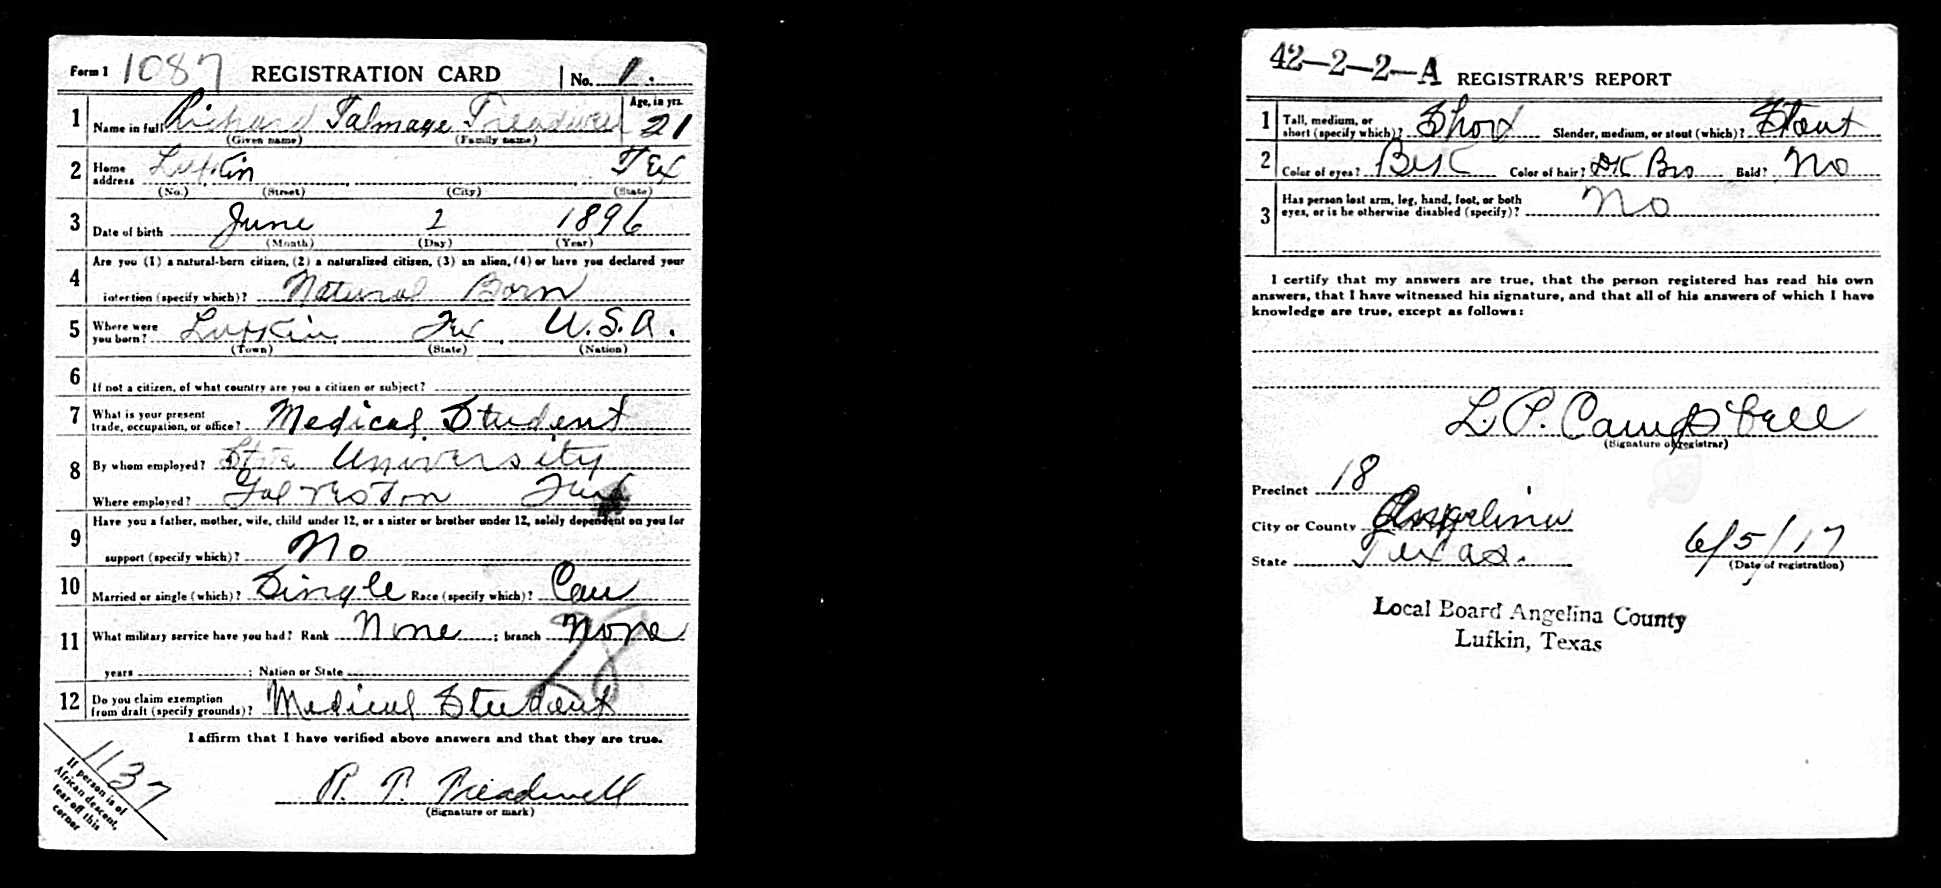 Form 1 1087 REGISTRATION CARD No. 1.
1 Name in full Richard Talmage Treadwell Age, in yrs. 21
(Given name) (Family name)
2 Home address Lufkin Tex
(No.) (Street) (City) (State)
3 Date of birth June 2 1896
(Month) (Day) (Year)
4 Are you (1) a natural-born citizen, (2) a naturalized citizen, (3) an alien, (4) or have you declared your
intention (specify which)? Natural Born
5 Where were you born? Lufkin Tex U.S.A.
(Town) (State) (Nation)
6 If not a citizen, of what country are you a citizen or subject?
7 What is your present trade, occupation, or office? Medical Student
8 By whom employed? State University
Where employed? Galveston Tex
9 Have you a father, mother, wife, child under 12, or a sister or brother under 12, solely dependent on you for
support (specify which)? No
10 Married or single (which)? Single Race (specify which)? Cau
11 What military service have you had? Rank None ; branch None
28
years ; Nation or State
12 Do you claim exemption from draft (specify grounds)? Medical Student
I affirm that I have verified above answers and that they are true.
1137
If person is of
African descent,
tear off this
corner
R. T. Treadwell
(Signature or mark)
42-2-2-A REGISTRAR'S REPORT
1 Tall, medium, or short (specify which)? Short Slender, medium, or stout (which)? Stout
2 Color of eyes? Blk Color of hair? Dk Bro Bald? No
3 Has person lost arm, leg, hand, foot, or both
eyes, or is he otherwise disabled (specify)? No
I certify that my answers are true, that the person registered has read his own
answers, that I have witnessed his signature, and that all of his answers of which I have
knowledge are true, except as follows:
L. P. Campbell
(Signature of registrar)
Precinct 18
City or County Angelina
State Texas. 6/5/17
(Date of registration)
Local Board Angelina County
Lufkin, Texas